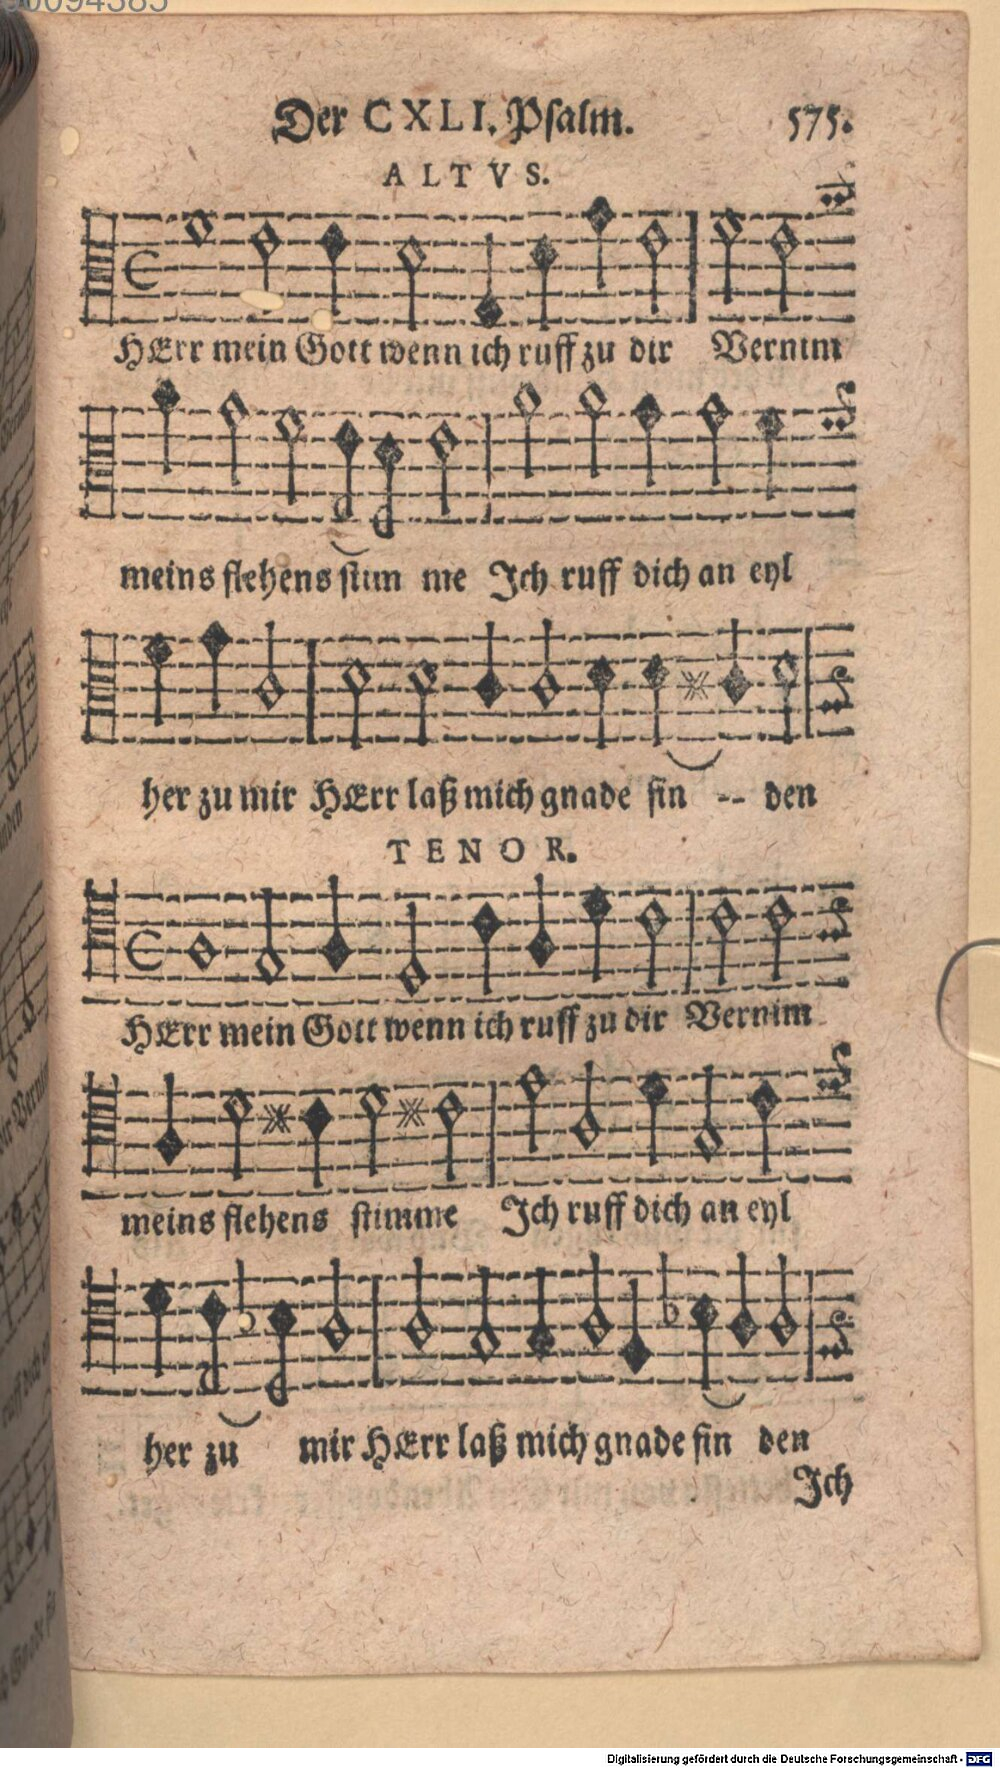 90094385
Der CXLI. Psalm. 575.
ALTVS.
HErr mein Gott wenn ich ruff zu dir Vernim
meins flehens stim me Ich ruff dich an eyl
her zu mir HErr laß mich gnade fin -- den
TENOR.
HErr mein Gott wenn ich ruff zu dir Vernim
meins flehens stimme Ich ruff dich an eyl
her zu mir HErr laß mich gnade fin den
Ich
Digitalisierung gefördert durch die Deutsche Forschungsgemeinschaft - DFG